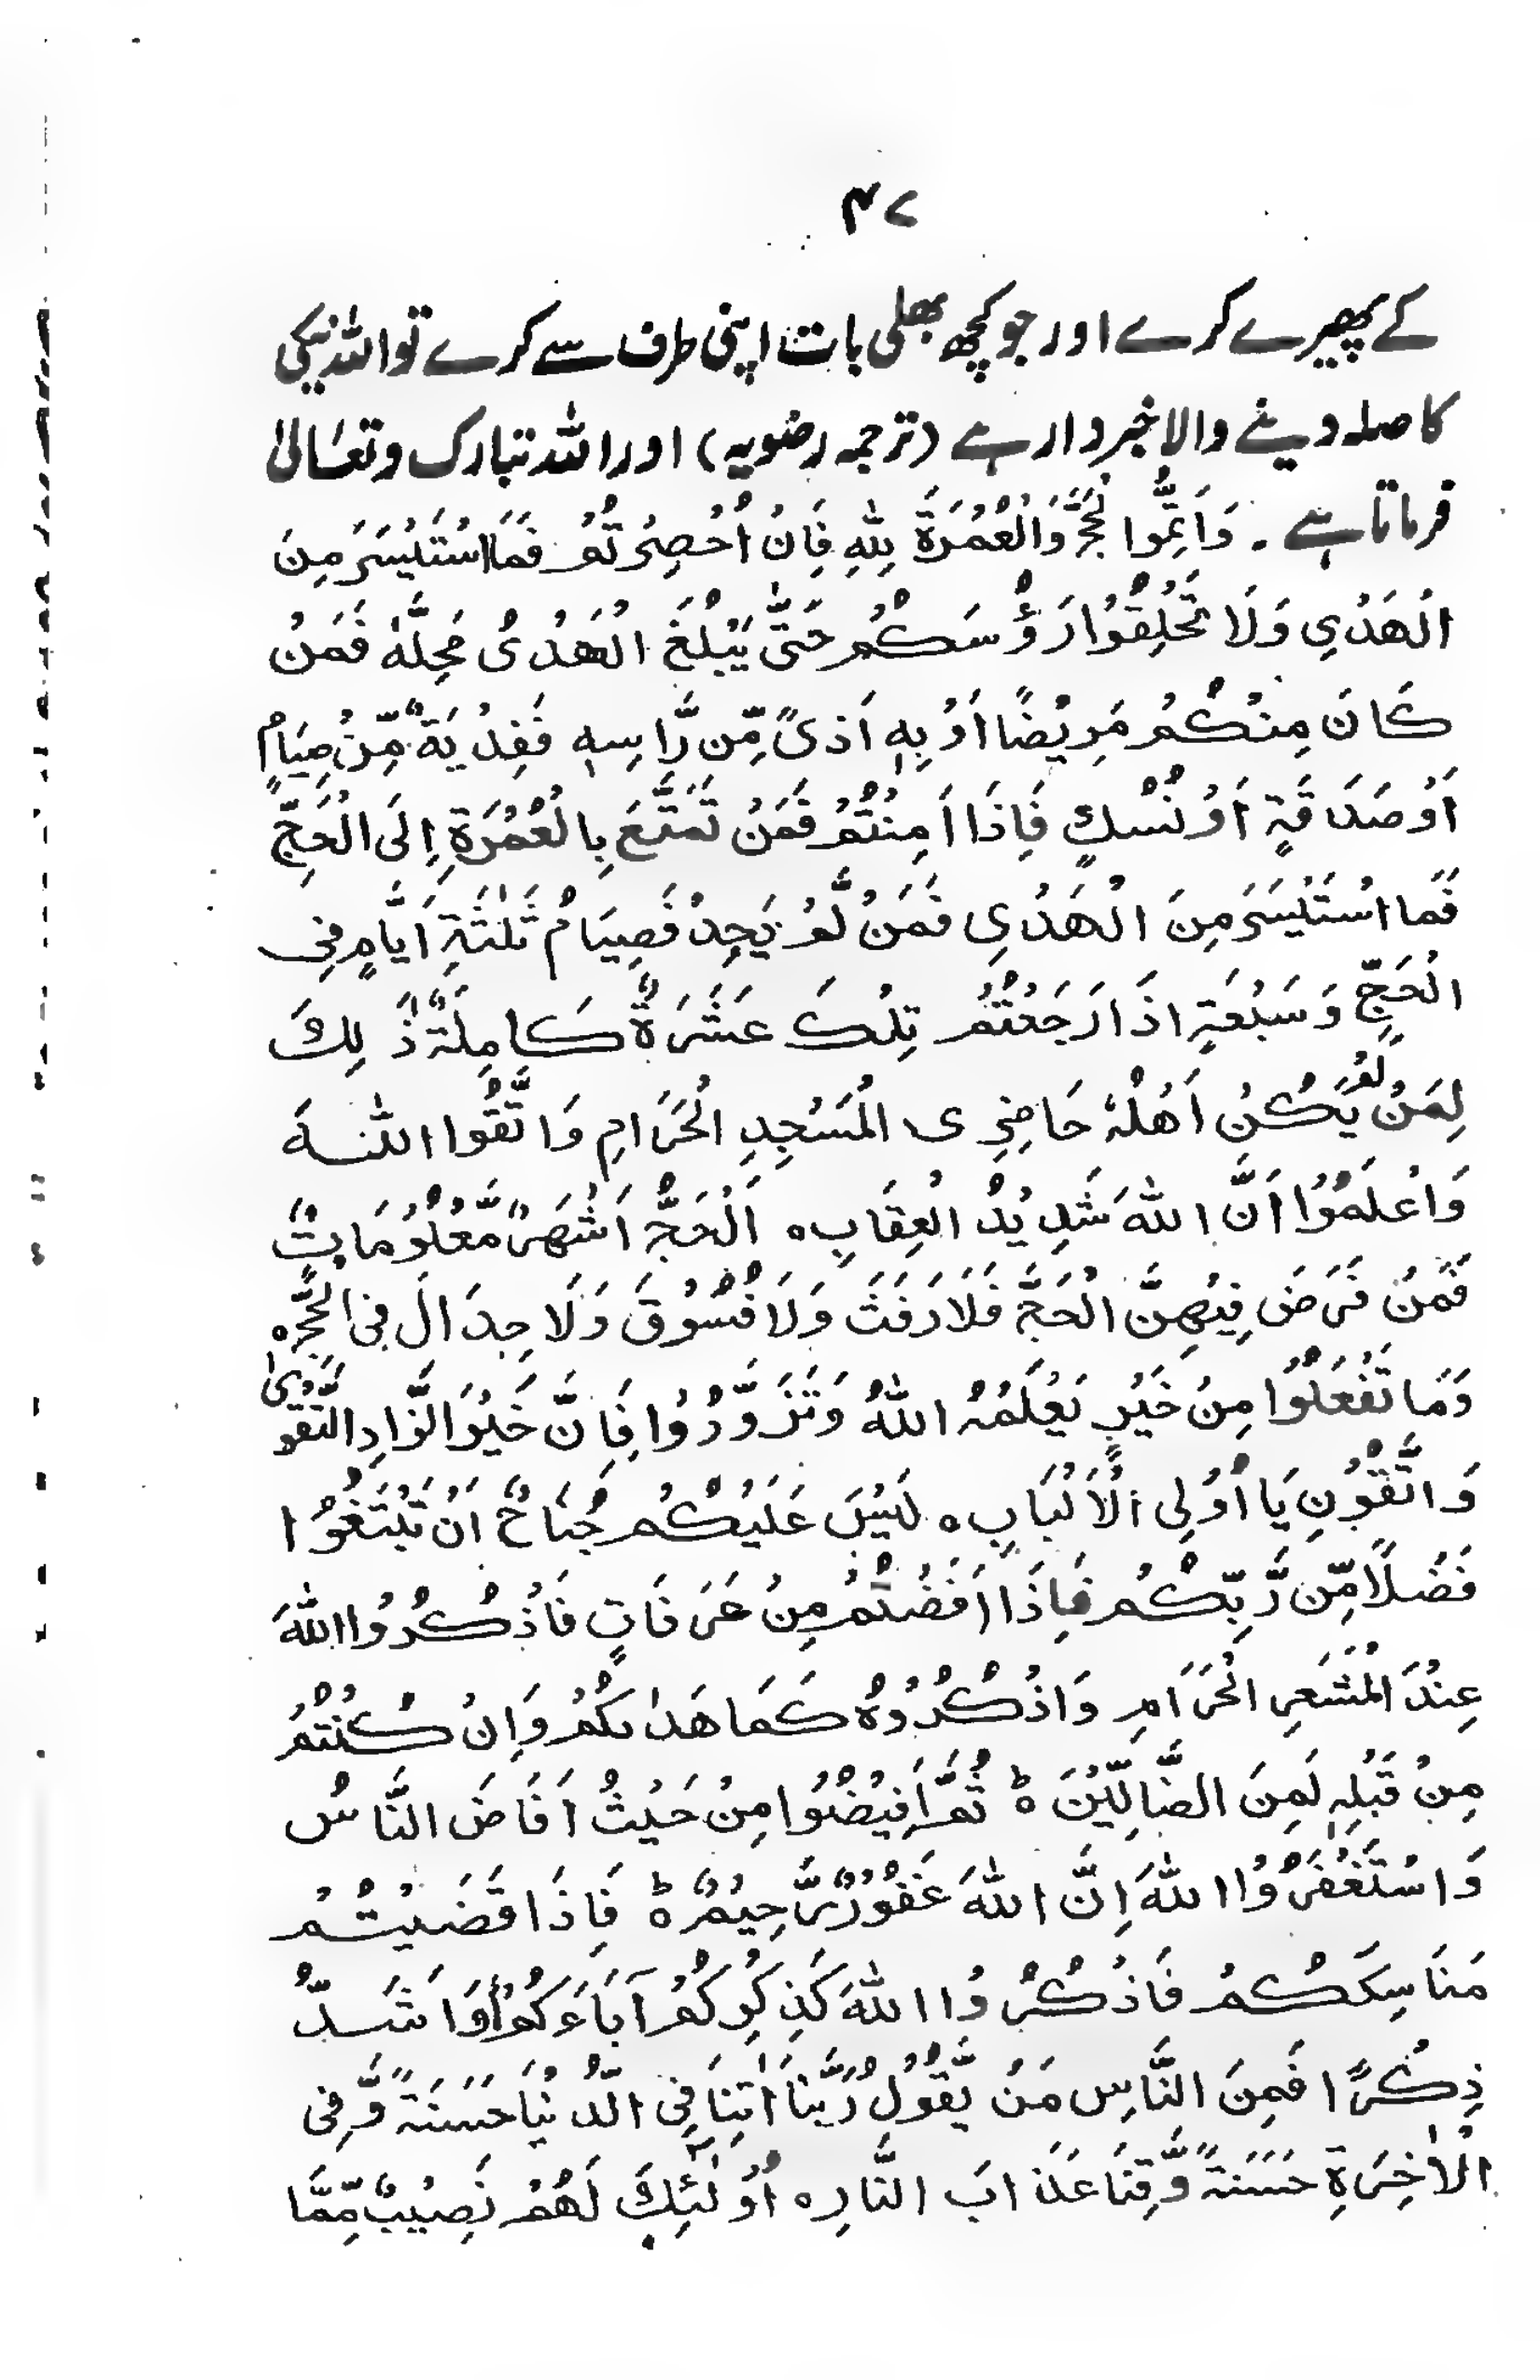 ۴۷
کے پھیرے کرے اور جو کچھ بھلی بات اپنی طرف سے کرے تو اللہ نیکی
کا صلہ دینے والا خبردار ہے (ترجمہ رضویہ) اور اللہ تبارک وتعالیٰ
فرماتا ہے ۔ وَاَتِمُّوا الْحَجَّ وَالْعُمْرَۃَ لِلہِ فَاِنْ اُحْصِرْتُمْ فَمَا اسْتَیْسَرَ مِنَ
الْھَدْیِ وَلَا تَحْلِقُوْا رَؤُسَکُمْ حَتّٰی یَبْلُغَ الْھَدْیُ مَحِلَّہٗ فَمَنْ
کَانَ مِنْکُمْ مَرِیْضًا اَوْ بِہٖ اَذیً مِّن رَّاسِہٖ فَفِدْیَۃٌ مِّنْ صِیَامٍ
اَوْ صَدَقَۃٍ اَوْ نُسُکٍ فَاِذَا اَمِنْتُمْ فَمَنْ تَمَتَّعَ بِالْعُمْرَۃِ اِلَی الْحَجِّ
فَمَا اسْتَیْسَرَ مِنَ الْھَدْیِ فَمَنْ لَّمْ یَجِدْ فَصِیَامُ ثَلٰثَۃِ اَیَّامٍ فِی
الْحَجِّ وَسَبْعَۃٍ اِذَا رَجَعْتُمْ تِلْکَ عَشَرَۃٌ کَامِلَۃٌ ذٰلِکَ
لِمَنْ لَّمْ یَکُنْ اَھْلُہٗ حَاضِرِی الْمَسْجِدِ الْحَرَامِ وَاتَّقُوا اللہَ
وَاعْلَمُوْا اَنَّ اللہَ شَدِیْدُ الْعِقَابِ ہ اَلْحَجُّ اَشْھُرٌ مَّعْلُوْمَاتٌ
فَمَنْ فَرَضَ فِیْھِنَّ الْحَجَّ فَلَا رَفَثَ وَلَا فُسُوْقَ وَلَا جِدَالَ فِی الْحَجِّ ہ
وَمَا تَفْعَلُوْا مِنْ خَیْرٍ یَعْلَمْہُ اللہُ وَتَزَوَّدُوْا فَاِنَّ خَیْرَ الزَّادِ التَّقْوٰی
وَاتَّقُوْنِ یَا اُوْلِی الْاَلْبَابِ ہ لَیْسَ عَلَیْکُمْ جُنَاحٌ اَنْ تَبْتَغُوْا
فَضْلًا مِّن رَّبِّکُمْ فَاِذَا اَفَضْتُمْ مِنْ عَرَفَاتٍ فَاذْکُرُوْا اللہَ
عِنْدَ الْمَشْعَرِ الْحَرَامِ وَاذْکُرُوْہُ کَمَا ھَدٰىکُمْ وَاِنْ کُنْتُمْ
مِنْ قَبْلِہٖ لَمِنَ الضَّالِّیْنَ ہ ثُمَّ اَفِیْضُوْا مِنْ حَیْثُ اَفَاضَ النَّاسُ
وَاسْتَغْفِرُوْا اللہَ اِنَّ اللہَ غَفُوْرٌ رَّحِیْمٌ ہ فَاِذَا قَضَیْتُمْ
مَنَاسِکَکُمْ فَاذْکُرُوْا اللہَ کَذِکْرِکُمْ آبَاءَکُمْ اَوْ اَشَدَّ
ذِکْرًا فَمِنَ النَّاسِ مَنْ یَّقُوْلُ رَبَّنَا اٰتِنَا فِی الدُّنْیَا حَسَنَۃً وَّفِی
الْاٰخِرَۃِ حَسَنَۃً وَّقِنَا عَذَابَ النَّارِ ہ اُوْلٰئِکَ لَھُمْ نَصِیْبٌ مِّمَّا